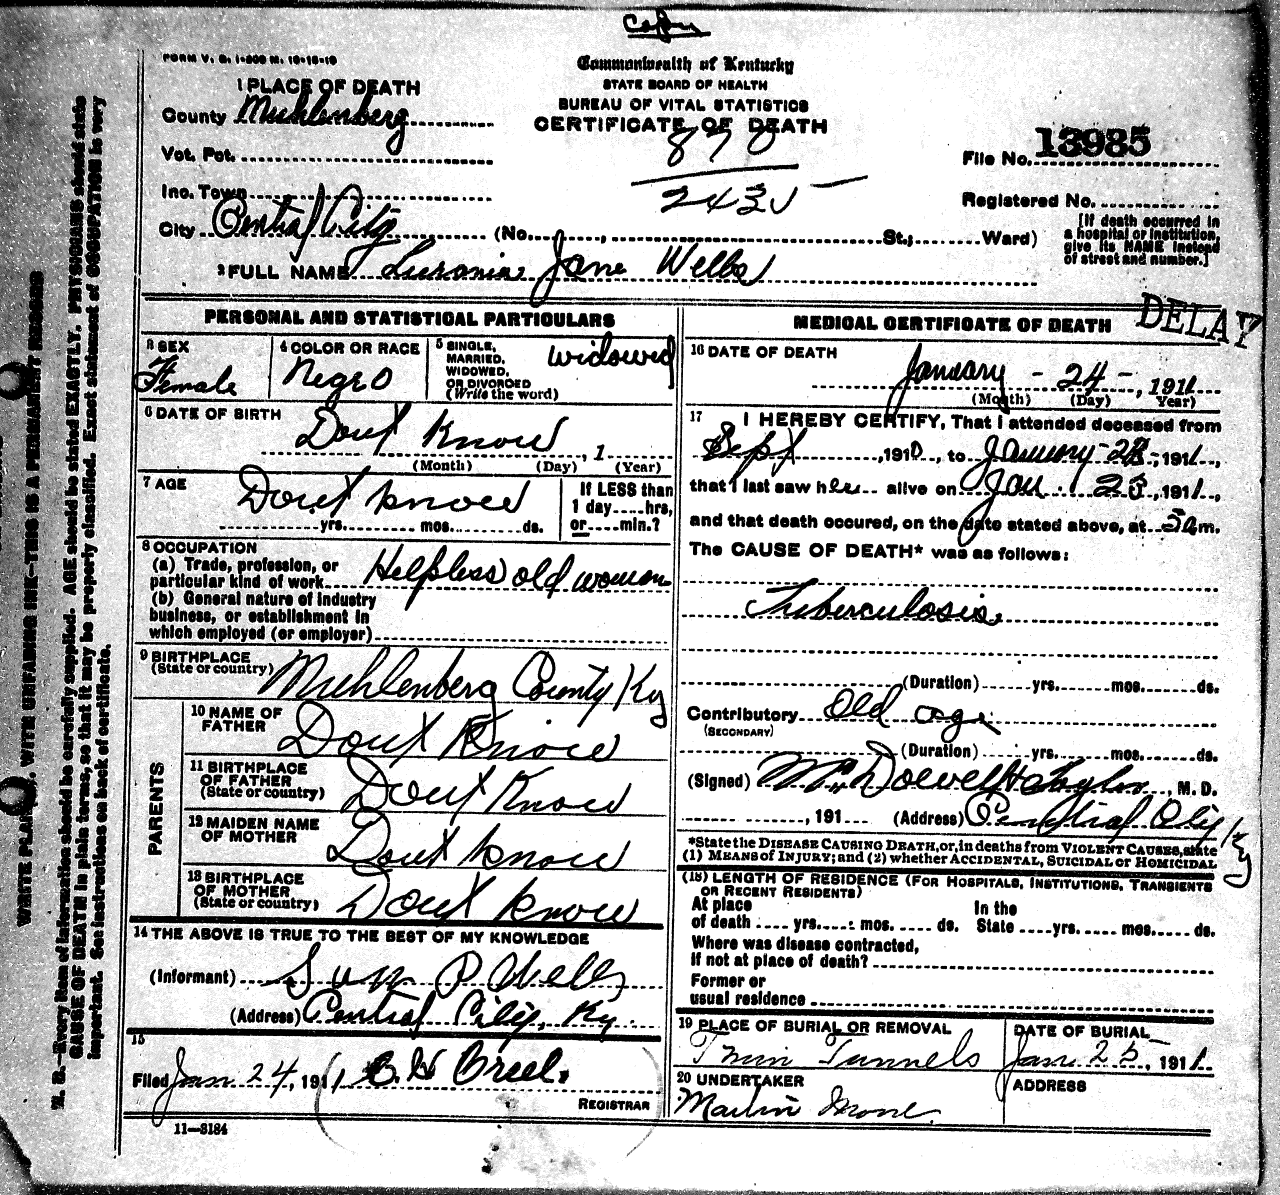 Copy
FORM V. S. 1-200 M. 10-18-19
Commonwealth of Kentucky
STATE BOARD OF HEALTH
BUREAU OF VITAL STATISTICS
CERTIFICATE OF DEATH
1 PLACE OF DEATH
County Muhlenberg
Vot. Pct.
Inc. Town
City Central City (No. , St.; Ward)
870
2435
File No. 13985
Registered No.
[If death occurred in
a hospital or institution,
give its NAME instead
of street and number.]
2 FULL NAME Luronia Jane Wells
DELAY
PERSONAL AND STATISTICAL PARTICULARS
3 SEX
Female
4 COLOR OR RACE
Negro
5 SINGLE,
MARRIED,
WIDOWED,
OR DIVORCED
(Write the word)
widowed
6 DATE OF BIRTH
Dont Know , 1
(Month) (Day) (Year)
7 AGE
Dont know
yrs. mos. ds.
If LESS than
1 day hrs,
or min.?
8 OCCUPATION
(a) Trade, profession, or
particular kind of work Helpless old woman
(b) General nature of industry
business, or establishment in
which employed (or employer)
9 BIRTHPLACE
(State or country) Muhlenberg County Ky
PARENTS
10 NAME OF
FATHER Dont Know
11 BIRTHPLACE
OF FATHER
(State or country) Dont Know
12 MAIDEN NAME
OF MOTHER Dont know
13 BIRTHPLACE
OF MOTHER
(State or country) Dont know
14 THE ABOVE IS TRUE TO THE BEST OF MY KNOWLEDGE
(Informant) Wells
(Address) Central City, Ky.
15
Filed Jan. 24, 1911 C.H. Creel.
REGISTRAR
11-3184
MEDICAL CERTIFICATE OF DEATH
16 DATE OF DEATH
January - 24 -, 1911
(Month) (Day) Year)
17 I HEREBY CERTIFY, That I attended deceased from
Sept , 1910, to January-23-, 1911,
that I last saw her alive on Jan. 23, 1911,
and that death occured, on the date stated above, at 5 a m.
The CAUSE OF DEATH* was as follows:
Tuberculosis
(Duration) yrs. mos. ds.
Contributory Old age
(SECONDARY)
(Duration) yrs. mos. ds.
(Signed) , M. D.
, 191 (Address) Central City Ky
*State the DISEASE CAUSING DEATH, or, in deaths from VIOLENT CAUSES, state
(1) MEANS of INJURY; and (2) whether ACCIDENTAL, SUICIDAL or HOMICIDAL
(18) LENGTH OF RESIDENCE (FOR HOSPITALS, INSTITUTIONS, TRANSIENTS
OR RECENT RESIDENTS)
At place
of death yrs. mos. ds.
In the
State yrs. mos. ds.
Where was disease contracted,
If not at place of death?
Former or
usual residence
19 PLACE OF BURIAL OR REMOVAL
Twin Tunnels
DATE OF BURIAL
Jan. 25, 1911.
20 UNDERTAKER
Martin
ADDRESS
WRITE PLAINLY, WITH UNFADING INK—THIS IS A PERMANENT RECORD
N. B.—Every item of information should be carefully supplied. AGE should be stated EXACTLY. PHYSICIANS should state
CAUSE OF DEATH in plain terms, so that it may be properly classified. Exact statement of OCCUPATION is very
important. See instructions on back of certificate.